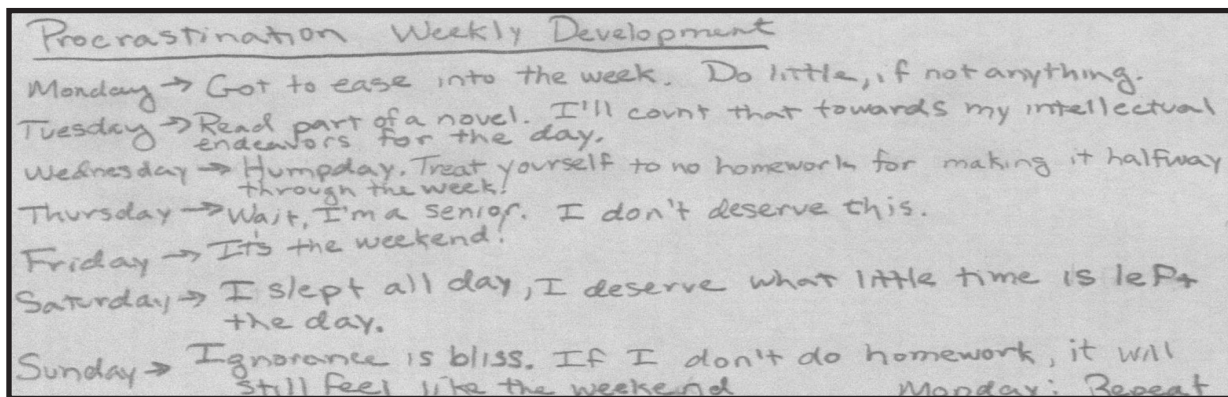 Procrastination Weekly Development
Monday → Got to ease into the week. Do little, if not anything.
Tuesday → Read part of a novel. I'll count that towards my intellectual
endeavors for the day.
Wednesday → Humpday. Treat yourself to no homework for making it halfway
through the week!
Thursday → Wait, I'm a senior. I don't deserve this.
Friday → It's the weekend!
Saturday → I slept all day, I deserve what little time is left
the day.
Sunday → Ignorance is bliss. If I don't do homework, it will
still feel like the weekend Monday: Repeat